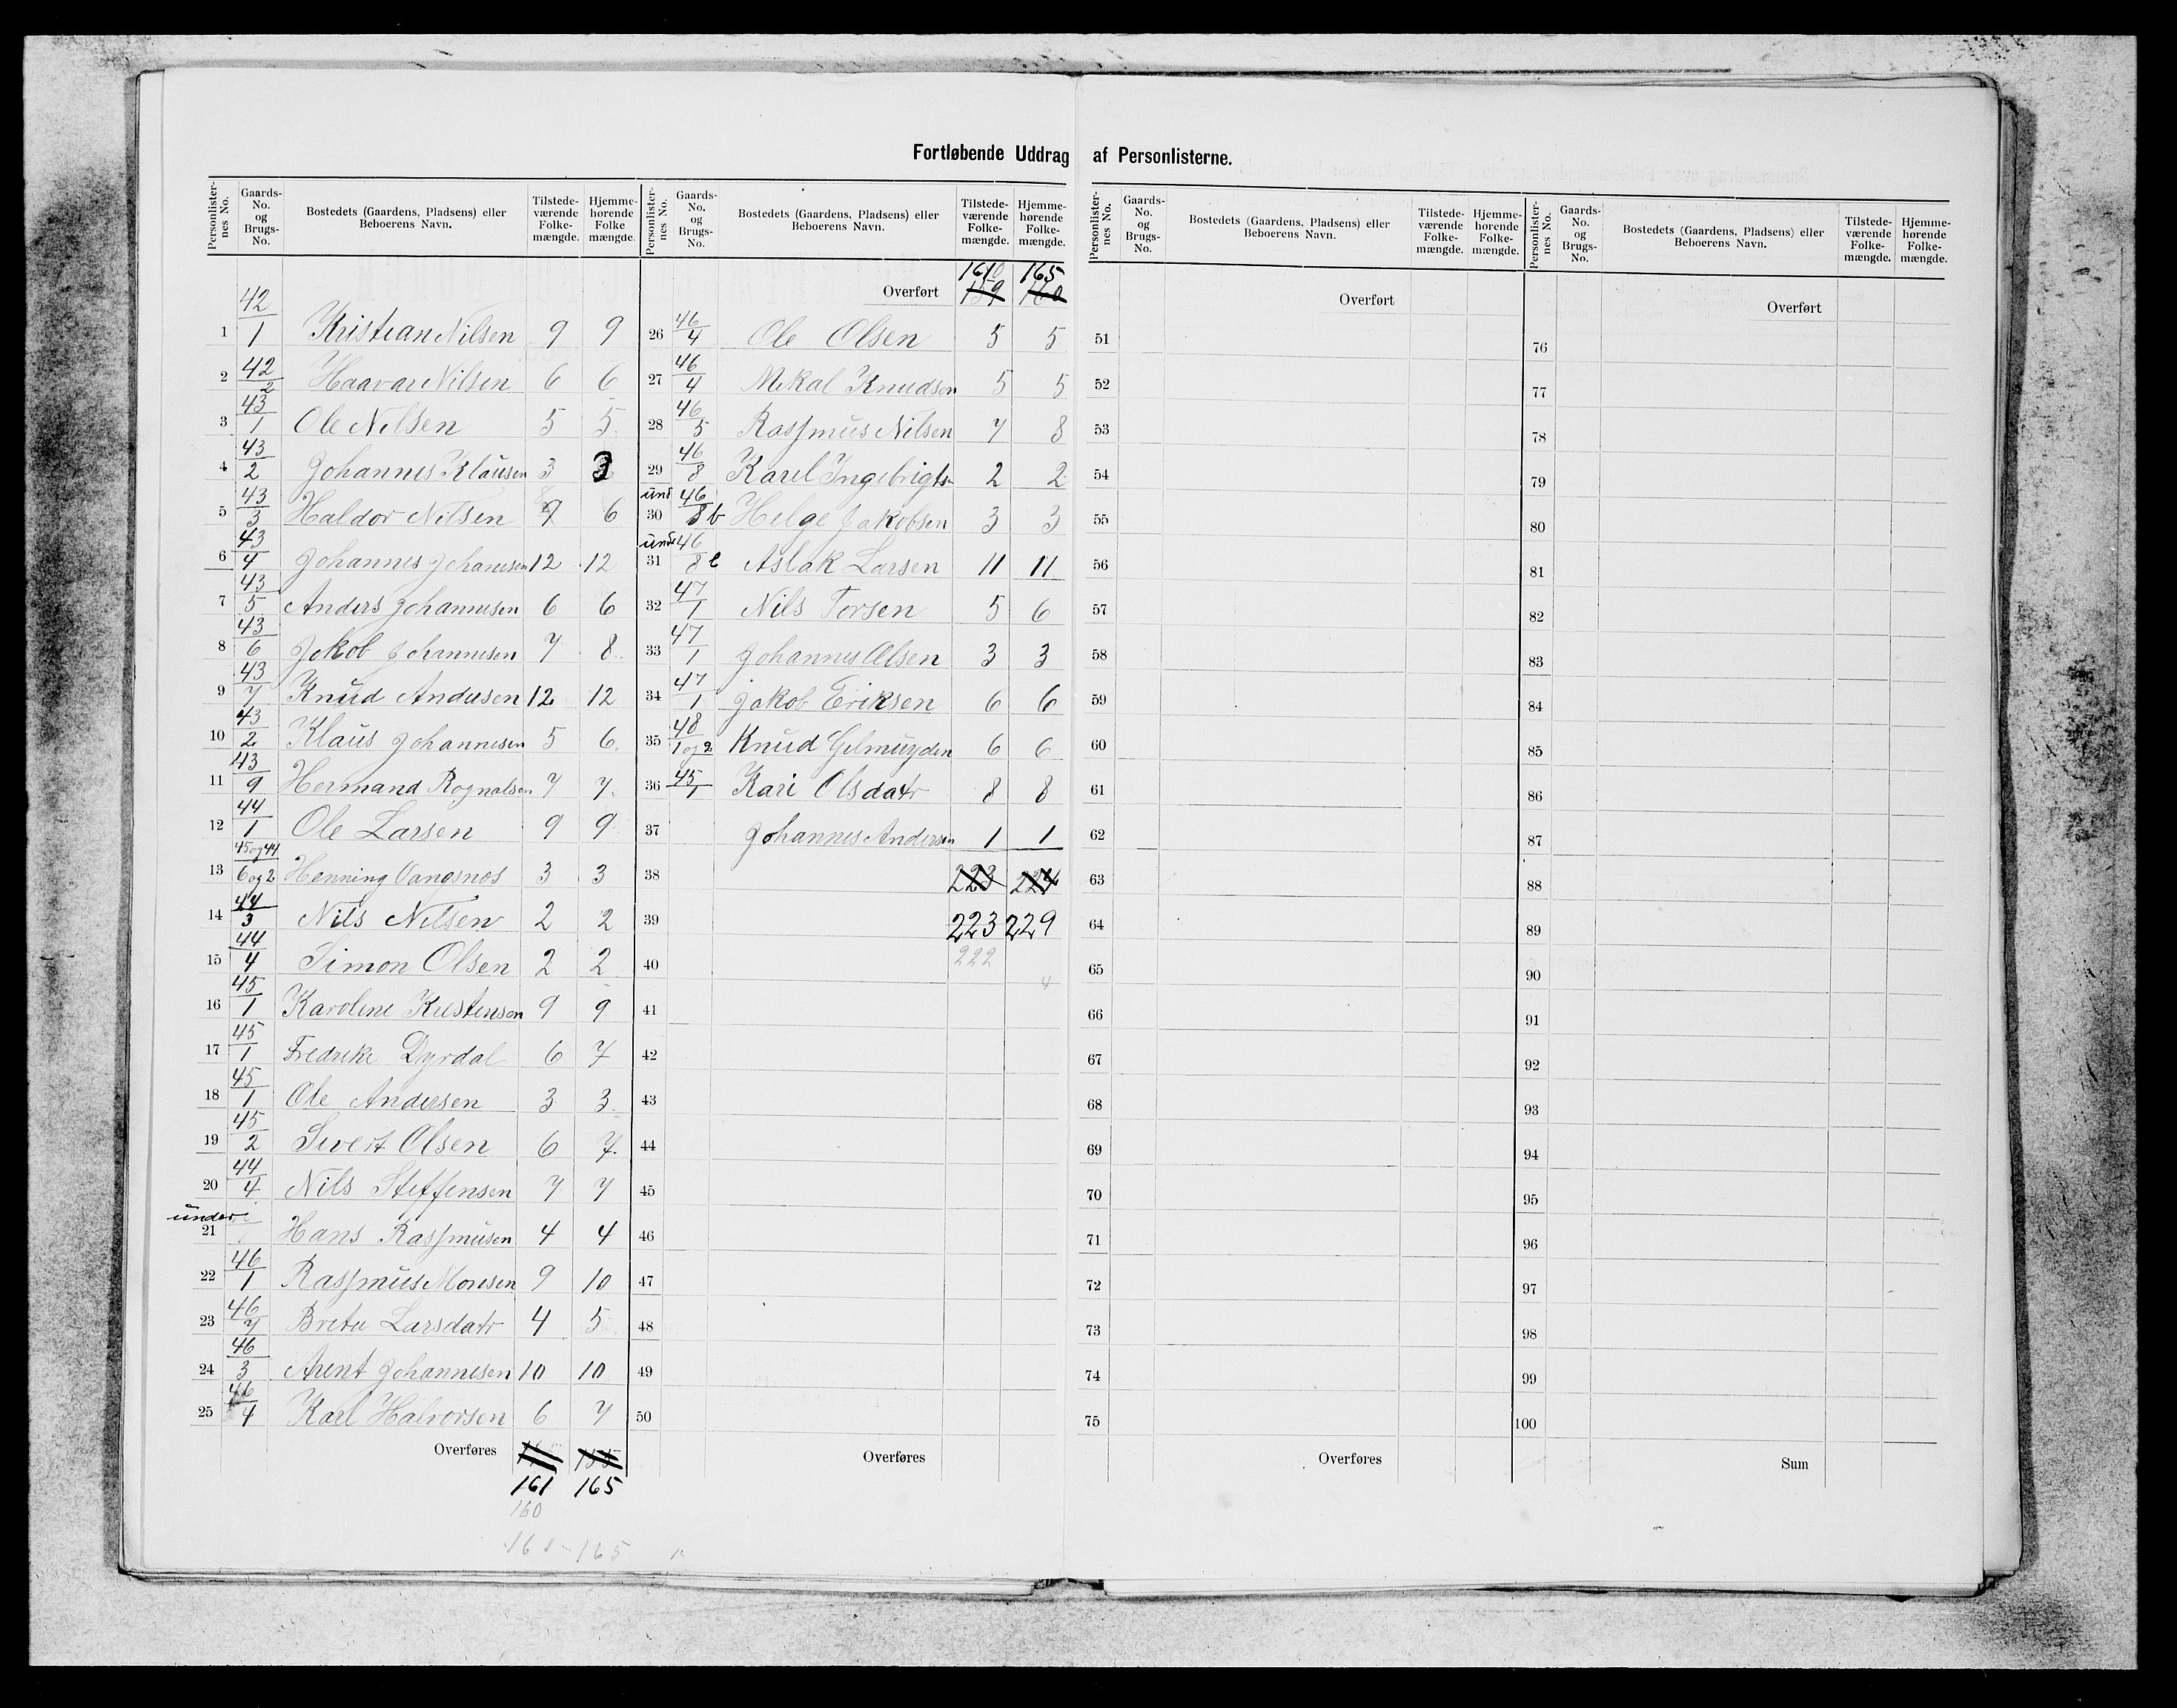 Fortløbende Uddrag af Personlisterne.
Personlisternes No. Gaards-No. og Brugs-No. Bostedets (Gaardens, Pladsens) eller Beboerens Navn. Tilstedeværende Folkemængde. Hjemmehørende Folkemængde.
1 42/1 Kristian Nilsen 9 9
2 42/2 Haavar Nilsen 6 6
3 43/1 Ole Nilsen 5 5
4 43/2 Johannes Klausen 3 3
5 43/3 Haldor Nilsen 6
6 43/4 Johannes Johannesen 12 12
7 43/5 Anders Johannesen 6 6
8 43/6 Jakob Johannesen 7 8
9 43/7 Knud Andersen 12 12
10 43/2 Klaus Johannesen 5 6
11 43/9 Hermand Rognalsen 7 7
12 44/1 Ole Larsen 9 9
13 45 og 44/6 og 2 Henning Vangsnes 3 3
14 44/3 Nils Nilsen 2 2
15 44/4 Simon Olsen 2 2
16 45/1 Karoline Kristensen 9 9
17 45/1 Fredrike Dyrdal 6 7
18 45/1 Ole Andersen 3 3
19 45/2 Sivert Olsen 6 7
20 44/4 Nils Steffensen 7 7
under
21 Hans Rasmusen 4 4
22 46/1 Rasmus Monsen 9 10
23 46/7 Brete Larsdatr 4 5
24 46/3 Arent Johannesen 10 10
25 46/4 Karl Halvorsen 6 7
Overføres
161 165
160
161-165
Personlisternes No. Gaards-No. og Brugs-No. Bostedets (Gaardens, Pladsens) eller Beboerens Navn. Tilstedeværende Folkemængde. Hjemmehørende Folkemængde.
161 165
Overført 159 160
26 46/4 Ole Olsen 5 5
27 46/4 Mikal Knudsen 5 5
28 46/5 Rasmus Nilsen 7 8
29 46/8 Karel Ingebrigts 2 2
und
30 46/8b Helge Jakobsen 3 3
und
31 46/8c Aslak Larsen 11 11
32 47/1 Nils Torsen 5 6
33 47/1 Johannes Olsen 3 3
34 47/1 Jakob Eriksen 6 6
35 48/1 og 2 Knud Gelmuyden 6 6
36 45/1 Kari Olsdatr 8 8
37 Johannes Andersen 1 1
38 223 224
39 223 229
40 222
41
42
43
44
45
46
47
48
49
50
Overføres
Personlisternes No. Gaards-No. og Brugs-No. Bostedets (Gaardens, Pladsens) eller Beboerens Navn. Tilstedeværende Folkemængde. Hjemmehørende Folkemængde.
Overført
51
52
53
54
55
56
57
58
59
60
61
62
63
64
65
66
67
68
69
70
71
72
73
74
75
Overføres
Personlisternes No. Gaards-No. og Brugs-No. Bostedets (Gaardens, Pladsens) eller Beboerens Navn. Tilstedeværende Folkemængde. Hjemmehørende Folkemængde.
Overført
76
77
78
79
80
81
82
83
84
85
86
87
88
89
90
91
92
93
94
95
96
97
98
99
100
Sum